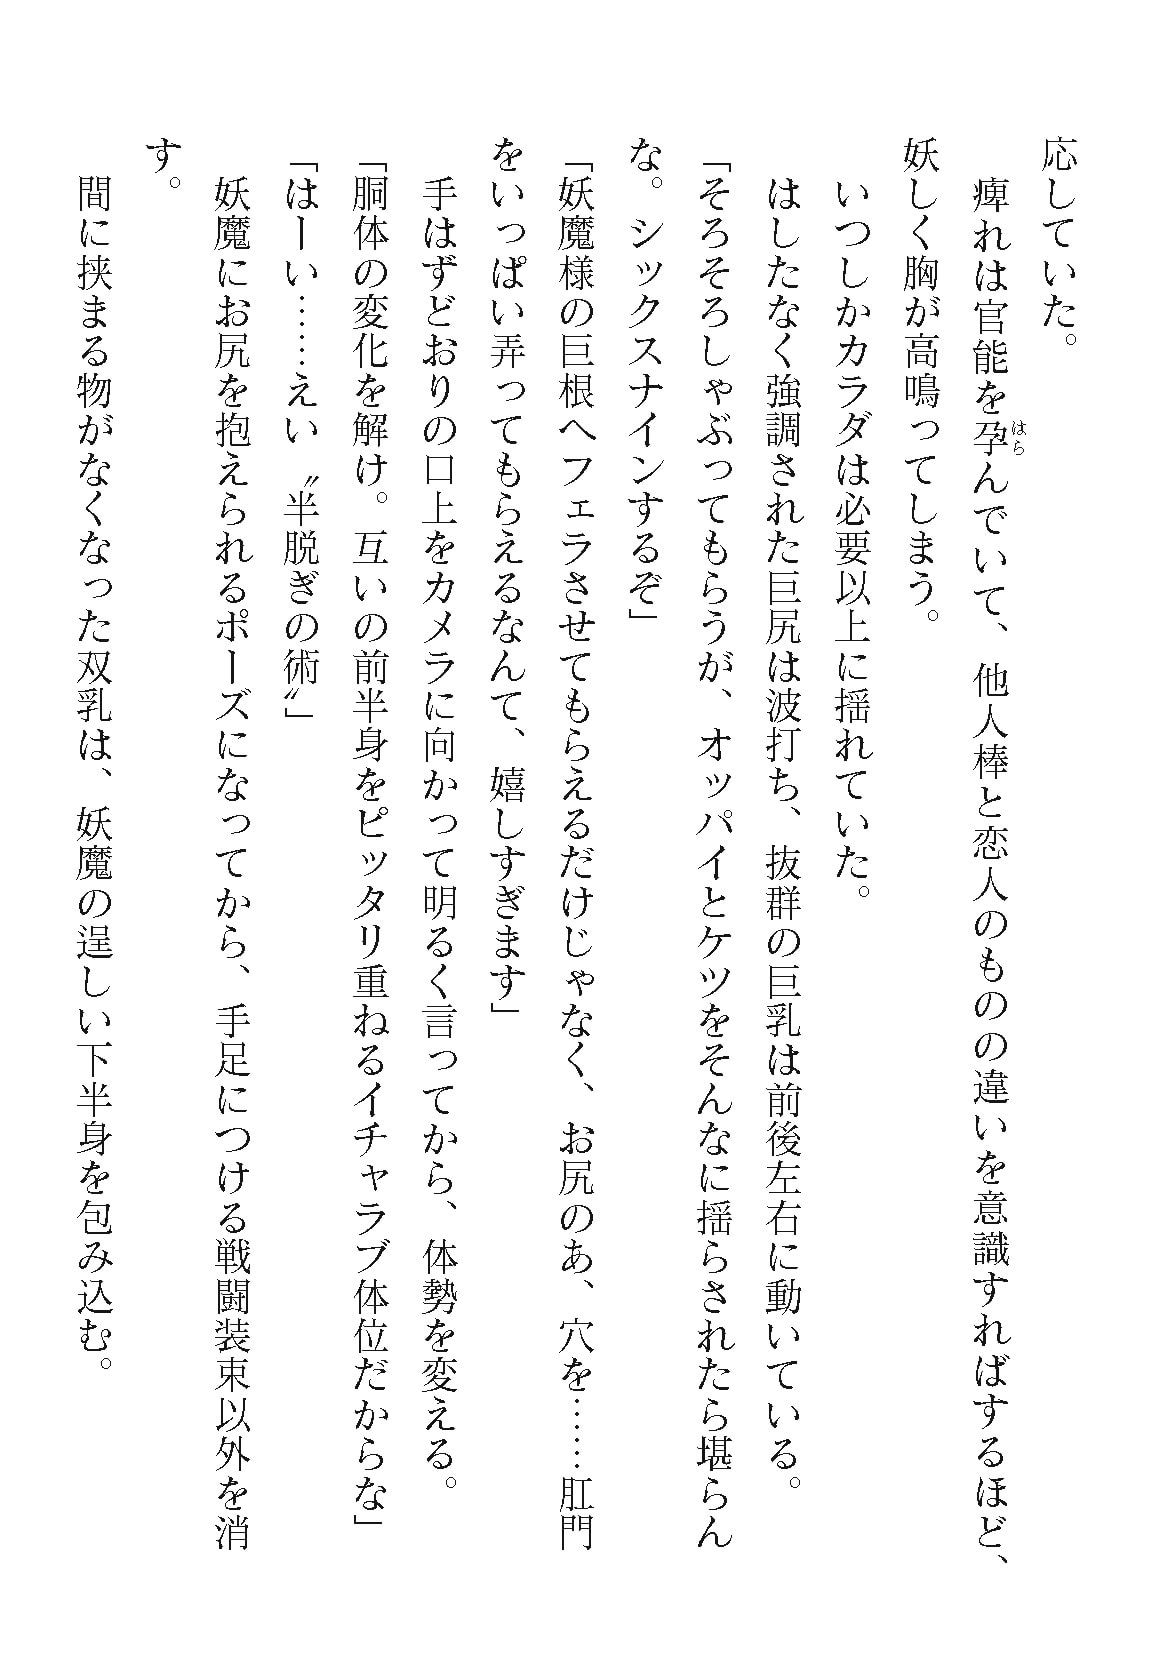 応していた。
痺れは官能を孕んでいて、他人棒と恋人のものの違いを意識すればするほど、
はら
妖しく胸が高鳴ってしまう。
いつしかカラダは必要以上に揺れていた。
はしたなく強調された巨尻は波打ち、抜群の巨乳は前後左右に動いている。
「そろそろしゃぶってもらうが、オッパイとケツをそんなに揺らされたら堪らん
な。シックスナインするぞ」
「妖魔様の巨根へフェラさせてもらえるだけじゃなく、お尻のあ、穴を……肛門
をいっぱい弄ってもらえるなんて、嬉しすぎます」
手はずどおりの口上をカメラに向かって明るく言ってから、体勢を変える。
「胴体の変化を解け。互いの前半身をピッタリ重ねるイチャラブ体位だからな」
「はーい……えい〝半脱ぎの術〟」
妖魔にお尻を抱えられるポーズになってから、手足につける戦闘装束以外を消
す。
間に挟まる物がなくなった双乳は、妖魔の逞しい下半身を包み込む。